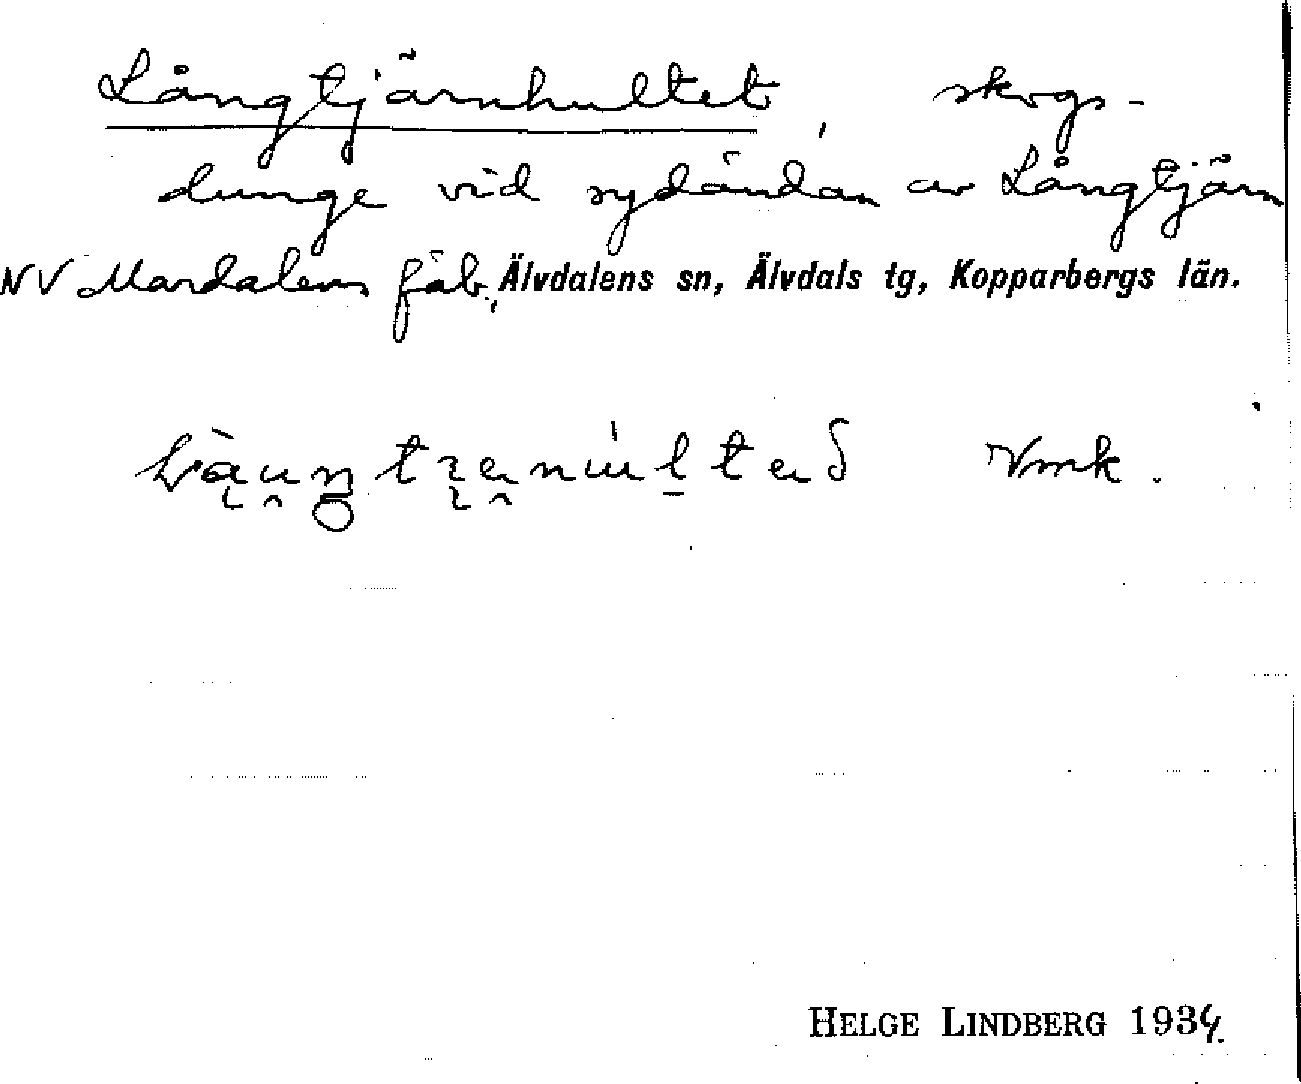 Långtjärnhultet, skogs-
dunge vid sydändan av Långtjärn
NV Mardalens fäb., Älvdalens sn, Älvdals tg, Kopparbergs län.
Vmk.
HELGE LINDBERG 1934.